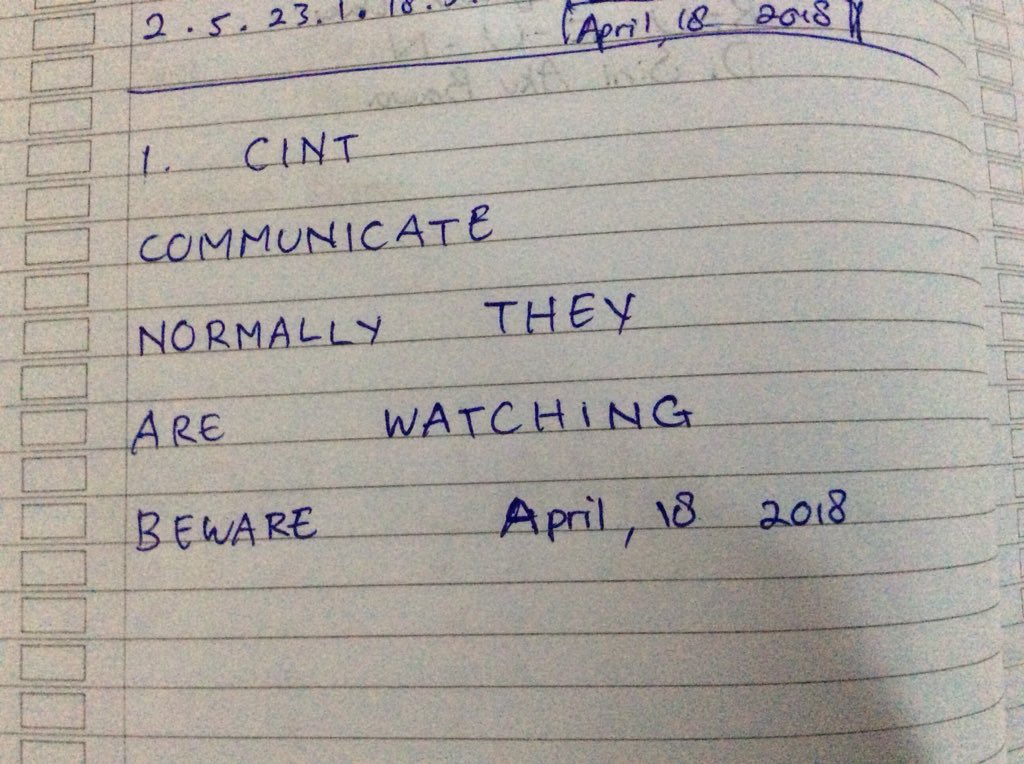 2.5.23.1.18.
April, 18 2018
1. CINT
COMMUNICATE
NORMALLY THEY
ARE WATCHING
BEWARE April, 18 2018